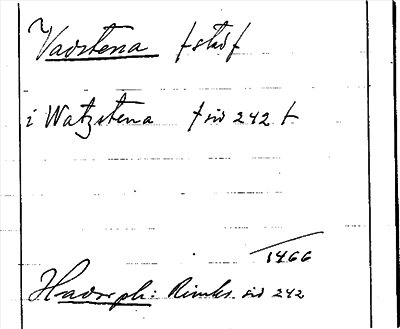 Vadstena fstif
i Watzstena f sid 242 f
1466
Hadorph: Rimkr. sid 242